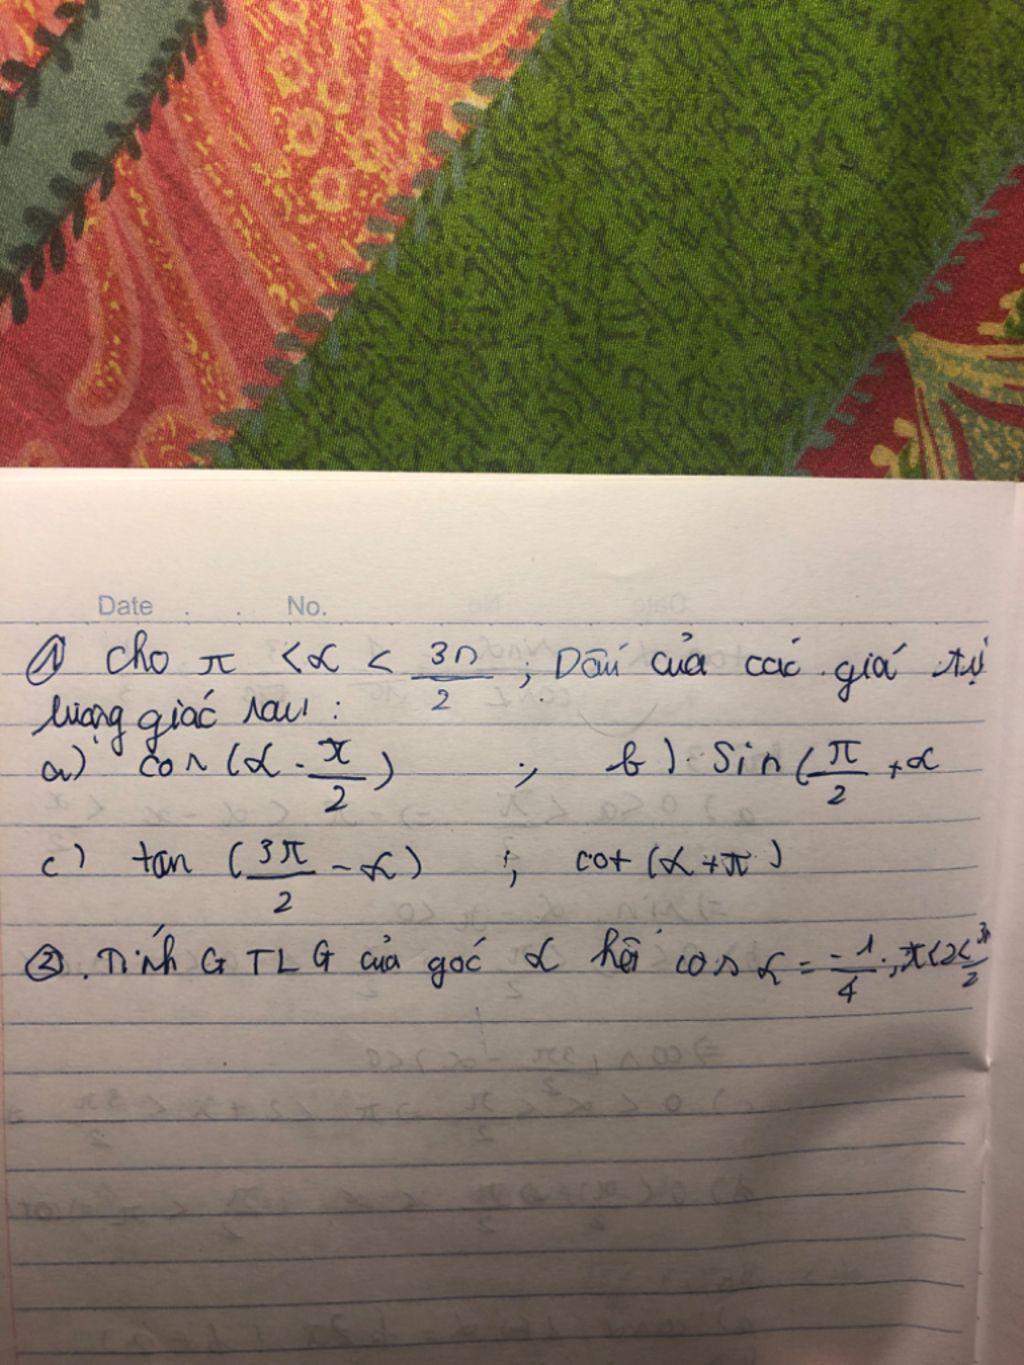 Date . . No.
① Cho π < α < 3π/2 ; Dấu của các giá trị
lượng giác sau :
a) cos (α - π/2) ; b) Sin (π/2 + α
c) tan (3π/2 - α) ; cot (α + π)
②. Tính GTLG của góc α hỏi cos α = -1/4 ; π < α < 3π/2